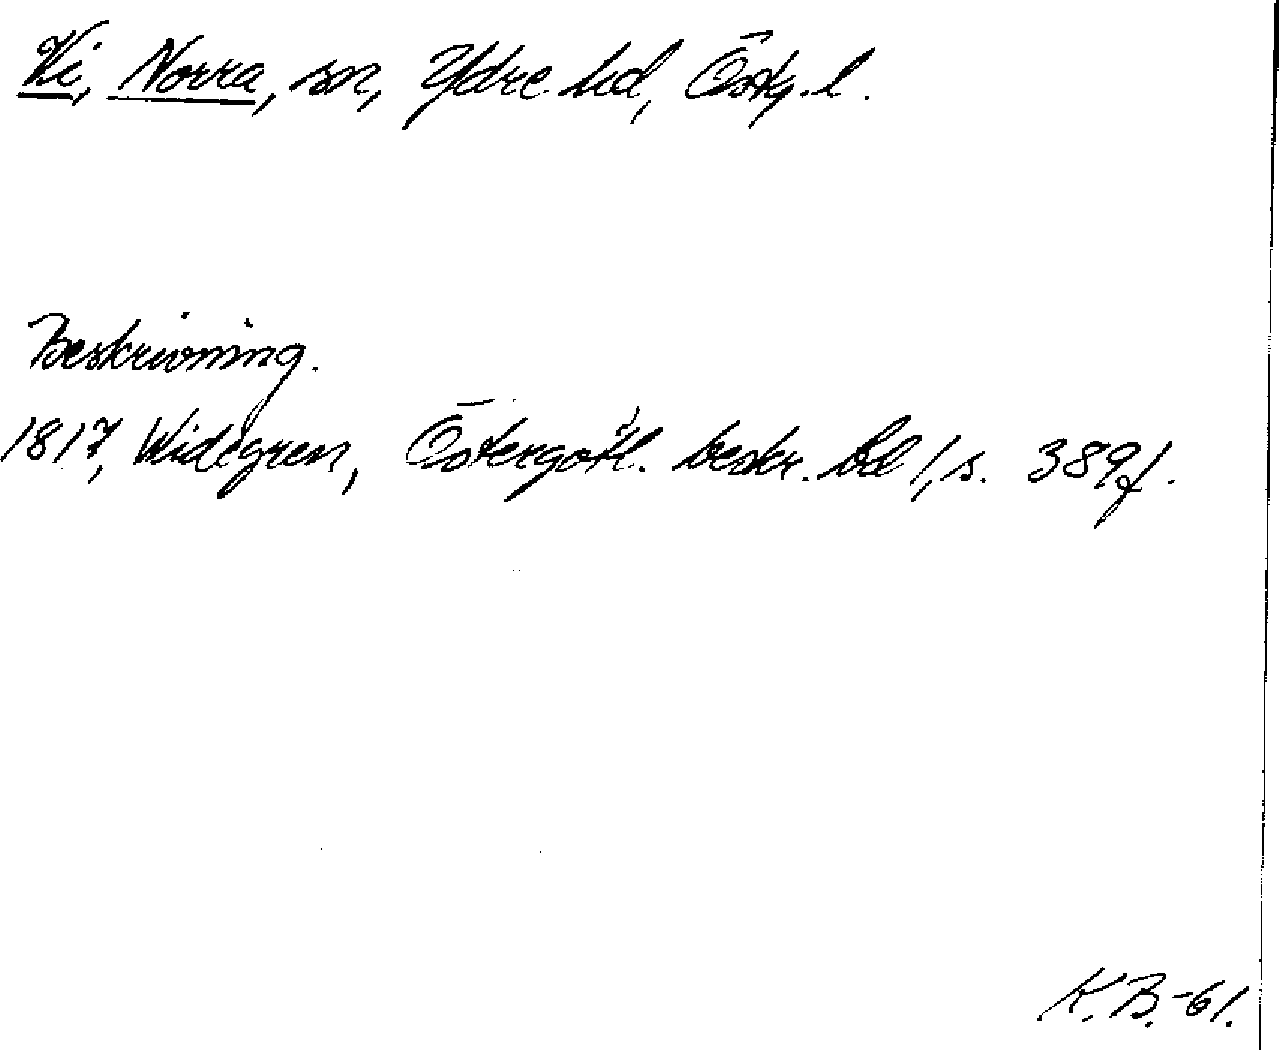 Vi, Norra, sn, Ydre hd, Östg. l.
Beskrivning.
1817, Widegren, Östergötl. beskr. bd 1, s. 389f.
K.B.-61.